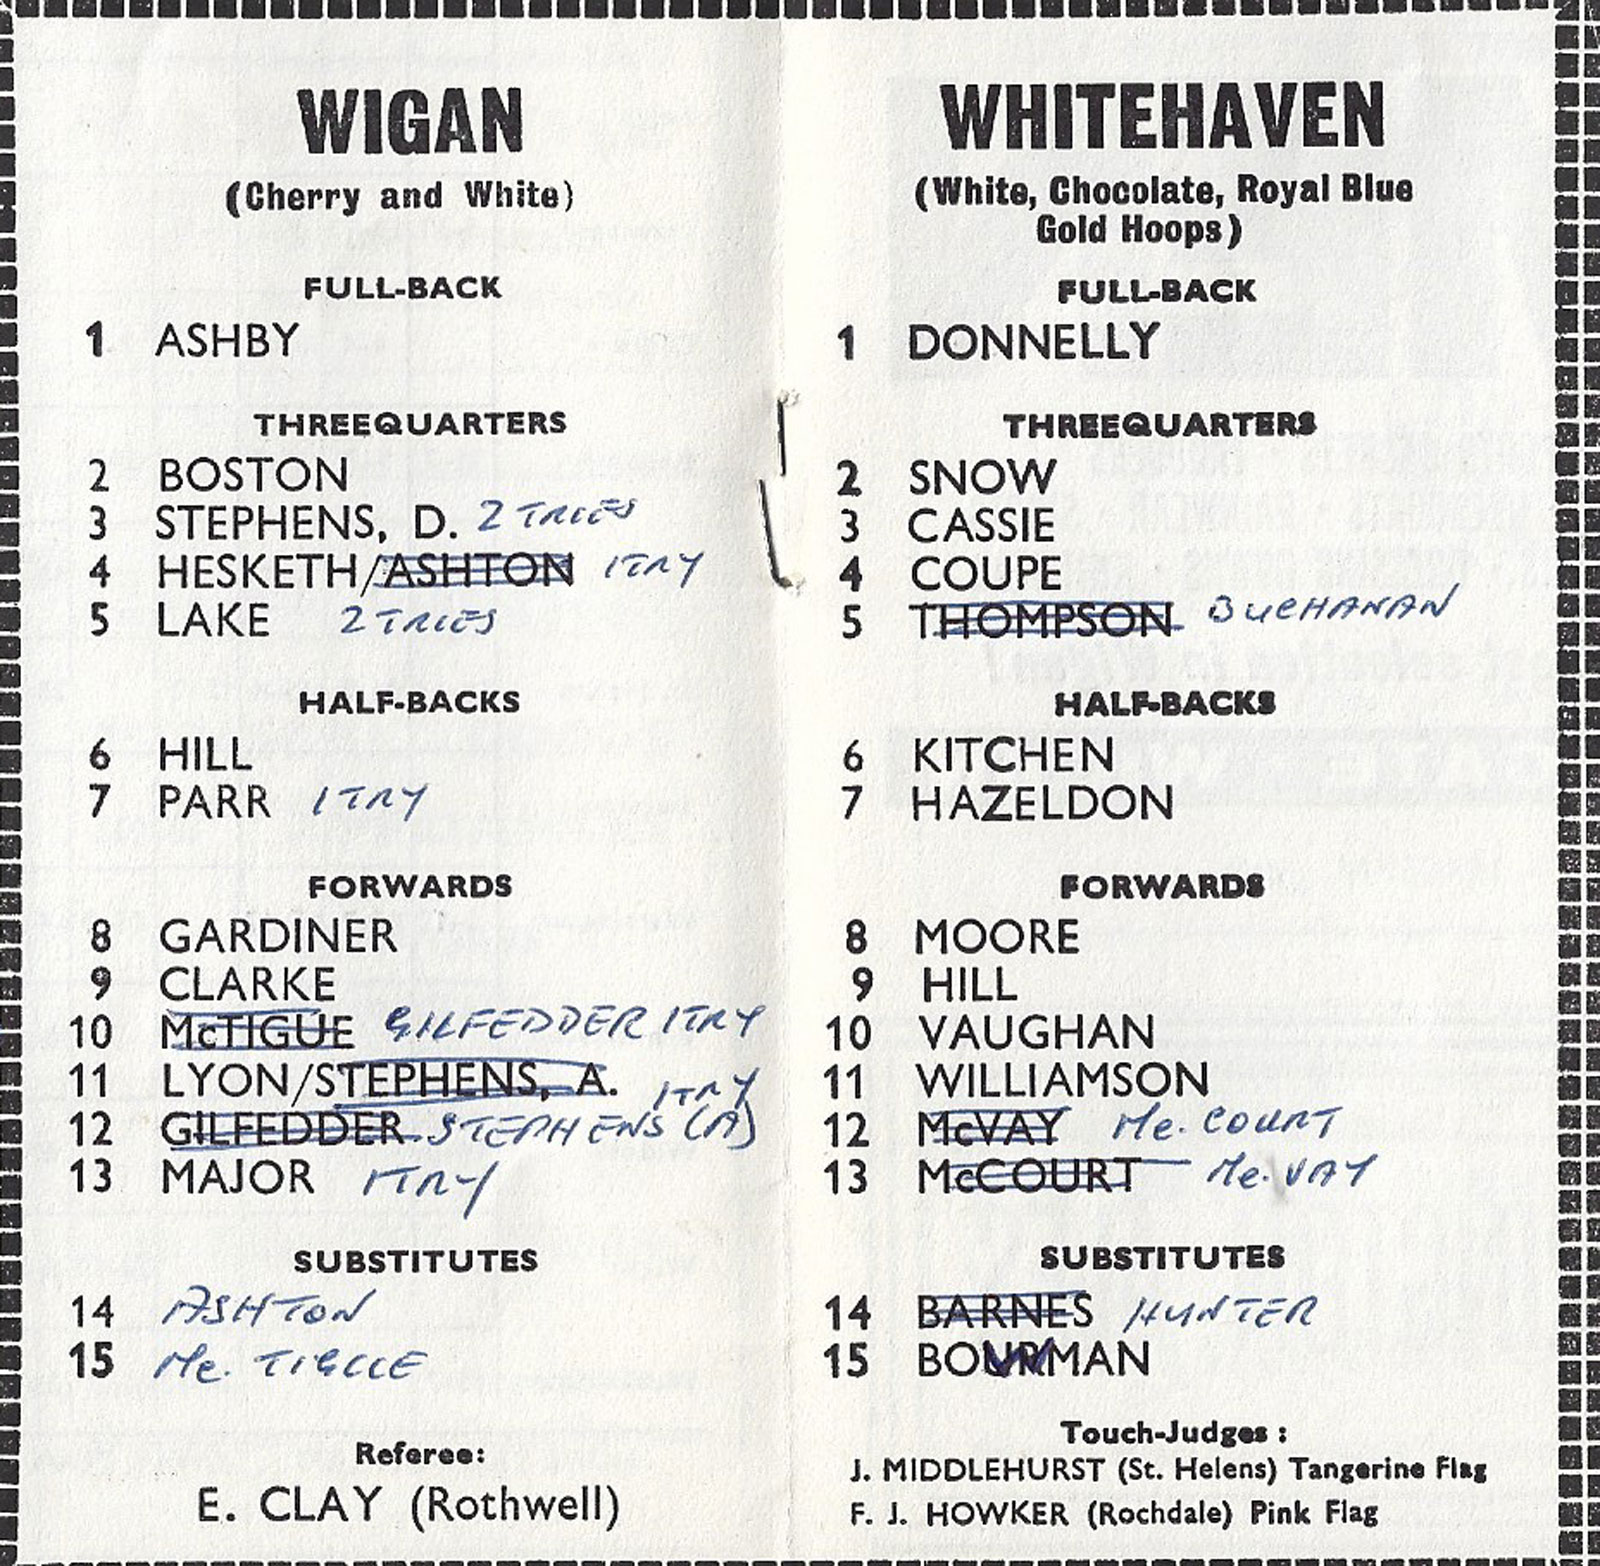 WIGAN
(Cherry and White)
FULL-BACK
1 ASHBY
THREEQUARTERS
2 BOSTON
3 STEPHENS, D. 2 TRIES
4 HESKETH/ASHTON 1 TRY
5 LAKE 2 TRIES
HALF-BACKS
6 HILL
7 PARR 1 TRY
FORWARDS
8 GARDINER
9 CLARKE
10 McTIGUE GILFEDDER 1 TRY
11 LYON/STEPHENS, A. 1 TRY
12 GILFEDDER STEPHENS (A)
13 MAJOR 1 TRY
SUBSTITUTES
14 ASHTON
15 Mc. TIGUE
Referee:
E. CLAY (Rothwell)
WHITEHAVEN
(White, Chocolate, Royal Blue
Gold Hoops)
FULL-BACK
1 DONNELLY
THREEQUARTERS
2 SNOW
3 CASSIE
4 COUPE
5 THOMPSON BUCHANAN
HALF-BACKS
6 KITCHEN
7 HAZELDON
FORWARDS
8 MOORE
9 HILL
10 VAUGHAN
11 WILLIAMSON
12 McVAY Mc. COURT
13 McCOURT Mc. VAY
SUBSTITUTES
14 BARNES HUNTER
15 BOWMAN
Touch-Judges :
J. MIDDLEHURST (St. Helens) Tangerine Flag
F. J. HOWKER (Rochdale) Pink Flag